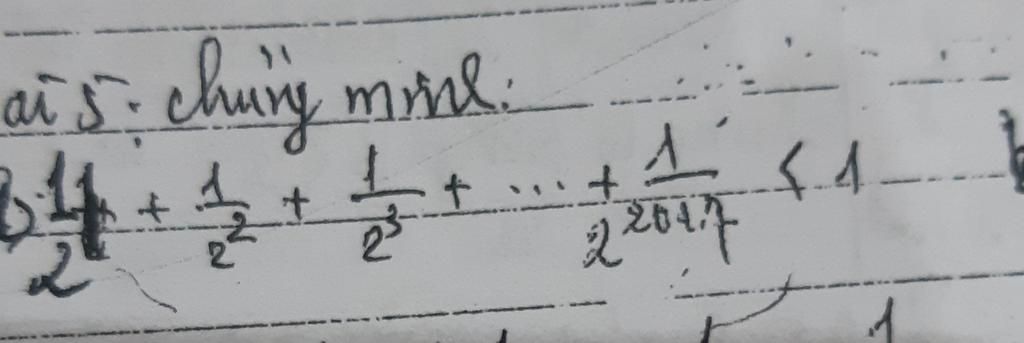 ai 5: chứng minh:
1/2 + 1/2² + 1/2³ + ... + 1/2²⁰¹⁷ < 1